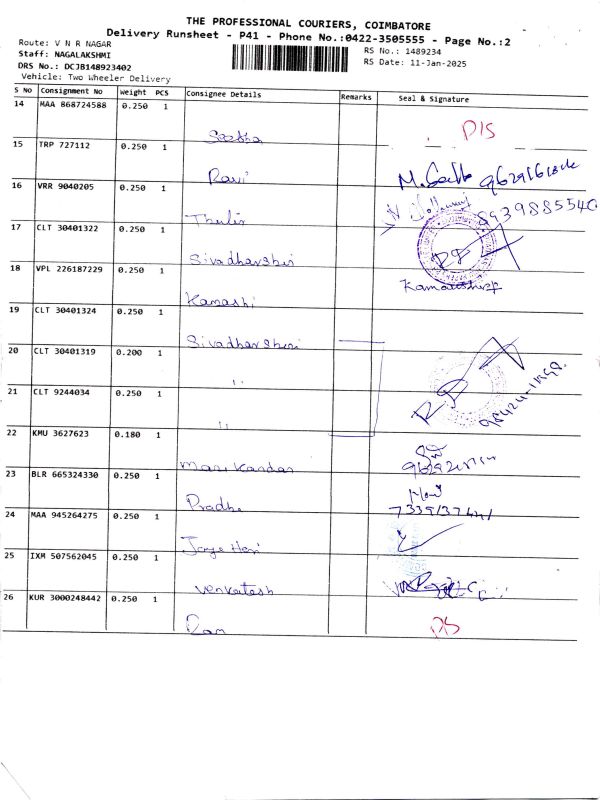 THE PROFESSIONAL COURIERS, COIMBATORE
Delivery Runsheet - P41 - Phone No.:0422-3505555 - Page No.:2
Route: V N R NAGAR
Staff: NAGALAKSHMI
DRS No.: DCJB148923402
Vehicle: Two Wheeler Delivery
RS No.: 1489234
RS Date: 11-Jan-2025
S No Consignment No Weight PCS Consignee Details Remarks Seal & Signature
14 MAA 868724588 0.250 1
15 TRP 727112 0.250 1 Ravi
16 VRR 9040205 0.250 1
17 CLT 30401322 0.250 1 Sivadharshini
18 VPL 226187229 0.250 1 Kamashi
19 CLT 30401324 0.250 1 Sivadharshini
20 CLT 30401319 0.200 1 "
21 CLT 9244034 0.250 1 "
22 KMU 3627623 0.180 1
23 BLR 665324330 0.250 1
24 MAA 945264275 0.250 1
25 IXM 507562045 0.250 1 Venkatesh
26 KUR 3000248442 0.250 1 Ram